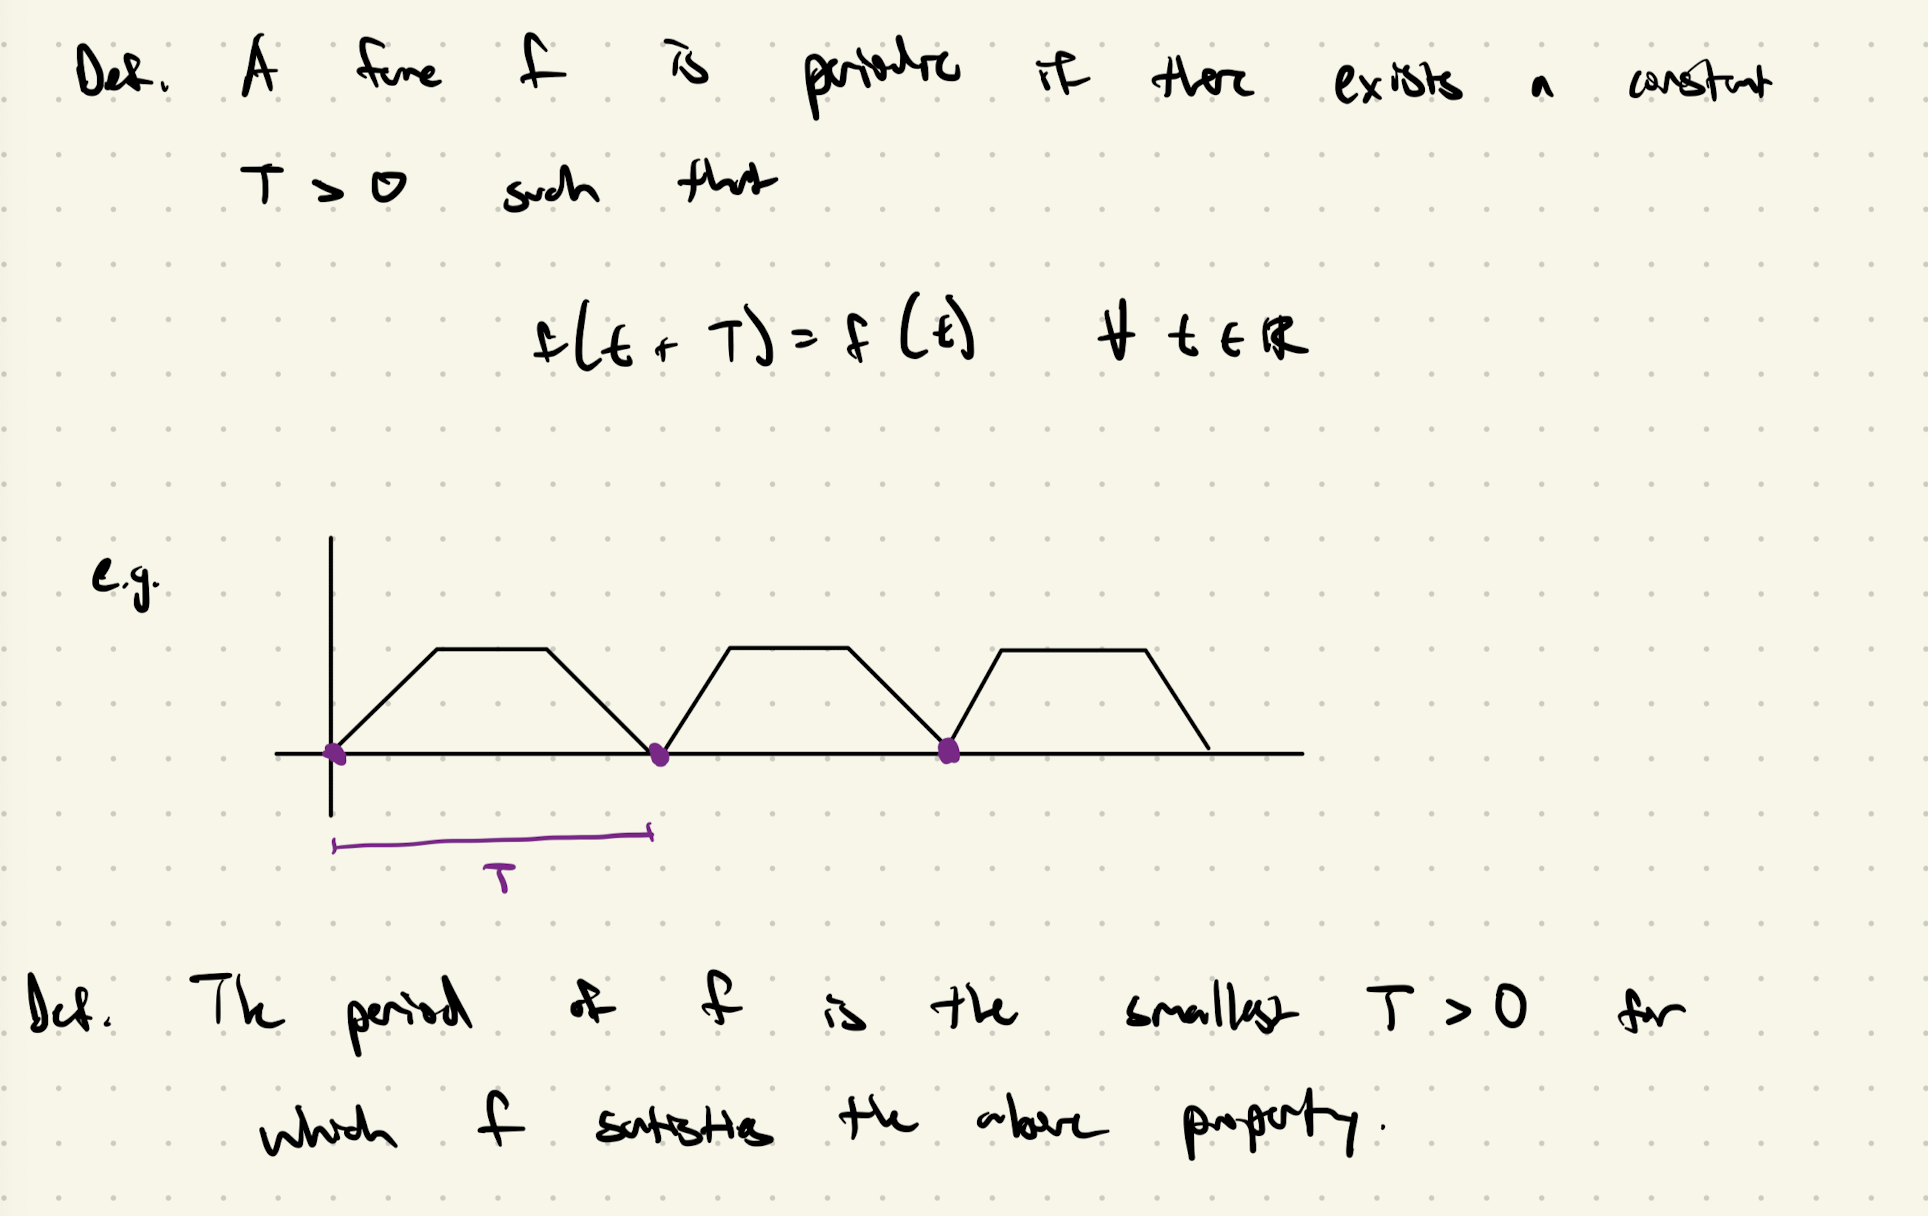 Def. A func f is periodic if there exists a constant
T > 0 such that
f(t + T) = f(t) ∀ t ∈ ℝ
e.g.
T
Def. The period of f is the smallest T > 0 for
which f satisfies the above property.